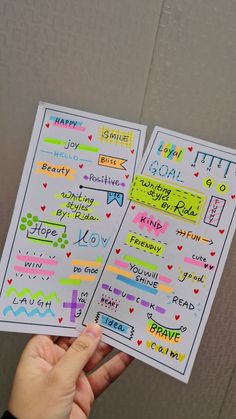 HAPPY
SMILE
joy
HELLO
Bliss
Beauty
Positive
Writing
styles
By:- Rida
Hope
LOV
WIN
DO GO
MY
LAUGH
Loyal
GOAL
GO
Writing
styles
By:- Rida
FUNNY
KIND
FUN
FRIENDLY
cute
good
YOU WILL
SHINE
HEART
LUCK
READ
Idea
BRAVE
Calm